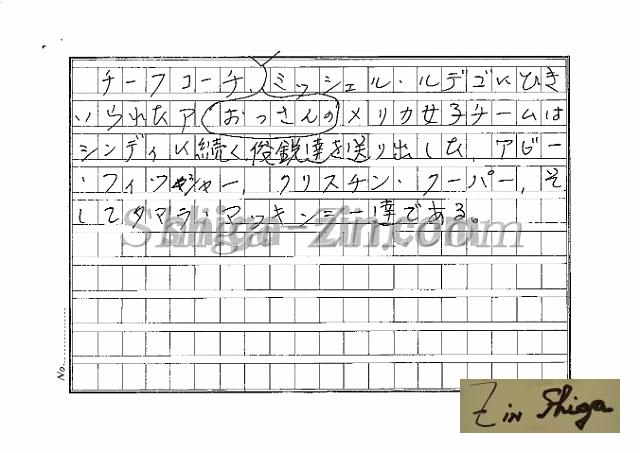 チーフコーチ、ミッシェル・ルデゴにひき
いられたア(おっさんの)メリカ女子チームは
シンディに続く俊鋭達を送り出した。アビー
・フィッシャー、クリスチン・クーパー、そ
してタマラ・マッキンニー達である。
Shiga-Zin.com
No.
Zin Shiga